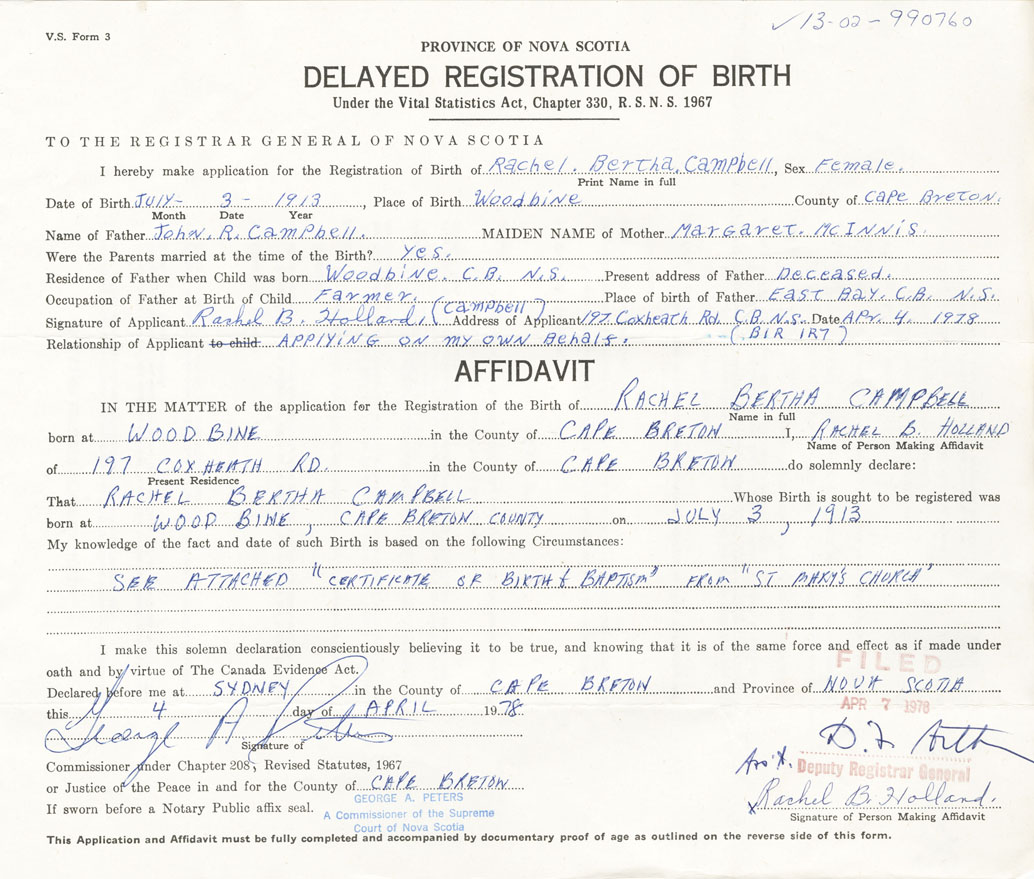 ✓13-02-990760
V.S. Form 3
PROVINCE OF NOVA SCOTIA
DELAYED REGISTRATION OF BIRTH
Under the Vital Statistics Act, Chapter 330, R.S.N.S. 1967
TO THE REGISTRAR GENERAL OF NOVA SCOTIA
I hereby make application for the Registration of Birth of Rachel. Bertha. Campbell, Sex Female.
Print Name in full
Date of Birth July- 3 - 1913, Place of Birth Woodbine County of Cape Breton.
Month Date Year
Name of Father John. R. Campbell. MAIDEN NAME of Mother Margaret. McInnis.
Were the Parents married at the time of the Birth? Yes.
Residence of Father when Child was born Woodbine. C.B. N.S. Present address of Father Deceased.
Occupation of Father at Birth of Child Farmer. Place of birth of Father East Bay. C.B. N.S.
Signature of Applicant Rachel B. Holland. (Campbell) Address of Applicant 197 Coxheath Rd. C.B. N.S. Date Apr. 4. 1978
Relationship of Applicant to child Applying on my own Behalf. (B1R 1R7)
AFFIDAVIT
IN THE MATTER of the application for the Registration of the Birth of RACHEL BERTHA CAMPBELL
Name in full
born at WOODBINE in the County of CAPE BRETON I, RACHEL B. HOLLAND
Name of Person Making Affidavit
of 197 COXHEATH RD. in the County of CAPE BRETON do solemnly declare:
Present Residence
That RACHEL BERTHA CAMPBELL Whose Birth is sought to be registered was
born at WOODBINE, CAPE BRETON COUNTY on JULY 3, 1913
My knowledge of the fact and date of such Birth is based on the following Circumstances:
SEE ATTACHED "CERTIFICATE OF BIRTH & BAPTISM" FROM "ST MARY'S CHURCH"
I make this solemn declaration conscientiously believing it to be true, and knowing that it is of the same force and effect as if made under
oath and by virtue of The Canada Evidence Act.
FILED
Declared before me at SYDNEY in the County of CAPE BRETON and Province of NOVA SCOTIA
this 4 day of APRIL 1978
APR 7 1978
George A. Peters
Signature of
Commissioner under Chapter 208, Revised Statutes, 1967
Deputy Registrar General
or Justice of the Peace in and for the County of CAPE BRETON
GEORGE A. PETERS
A Commissioner of the Supreme
Court of Nova Scotia
If sworn before a Notary Public affix seal.
x Rachel B. Holland.
Signature of Person Making Affidavit
This Application and Affidavit must be fully completed and accompanied by documentary proof of age as outlined on the reverse side of this form.